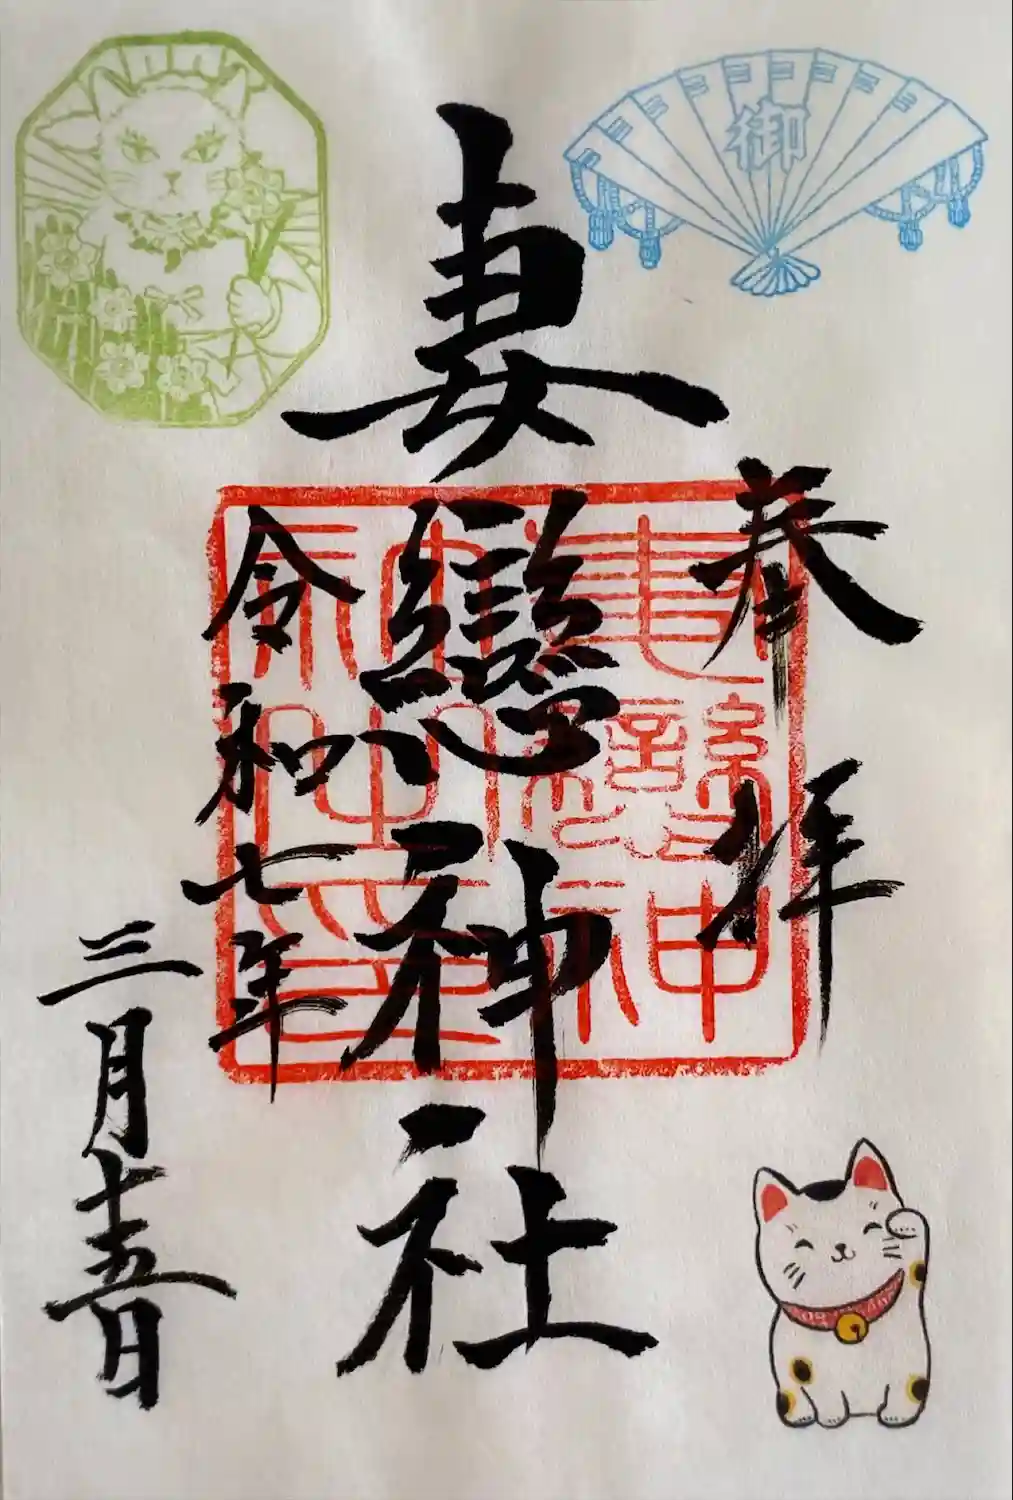 奉拝
妻戀神社
令和七年
三月十五日
御
妻戀神社印